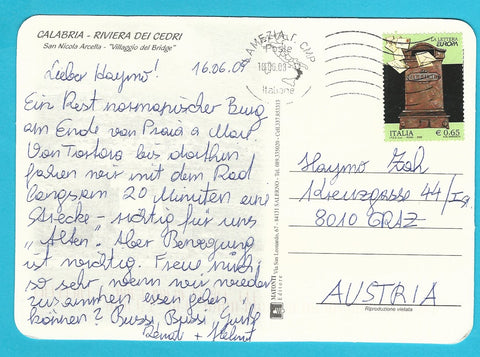 CALABRIA - RIVIERA DEI CEDRI
San Nicola Arcella - "Villaggio del Bridge"
Lieber Haymo! 16.06.09
Ein Rest normannischer Burg
am Ende von Praia a Mare
Von Tortora bis dorthin
fahren wir mit dem Rad
langsam 20 Minuten eine
Strecke - richtig für uns
"Alten". Aber Bewegung
ist wichtig. Freue mich
so sehr, wenn wir wieder
zusammen essen gehen
können? Bussi Bussi
+ Helmut
LAMEZIA T. CMP
Poste
Italiane
LA LETTERA
EUROPA
ITALIA € 0,65
Haymo
8010 GRAZ
AUSTRIA
Riproduzione vietata
MATONTI
Editore
Via San Leonardo, 67 - 84131 SALERNO